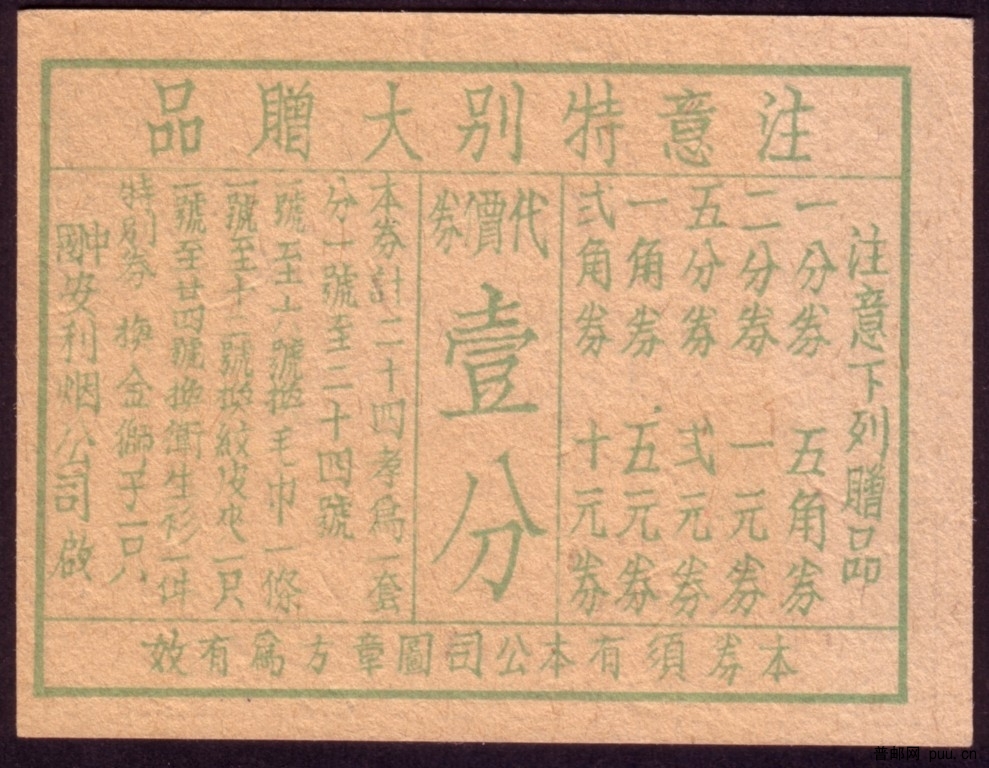 注意特别大贈品
注意下列贈品
一分券 五角券
二分券 一元券
五分券 弍元券
一角券 五元券
弍角券 十元券
代價券
壹分
本券計二十四孝爲一套
分一號至二十四號
一號至六號換毛巾一條
一號至十二號換紋皮夾一只
一號至廿四號換衛生衫一件
特别券 換金獅子一只
中國安利烟公司啟
本券須有本公司圖章方爲有效
普邮网 puu.cn